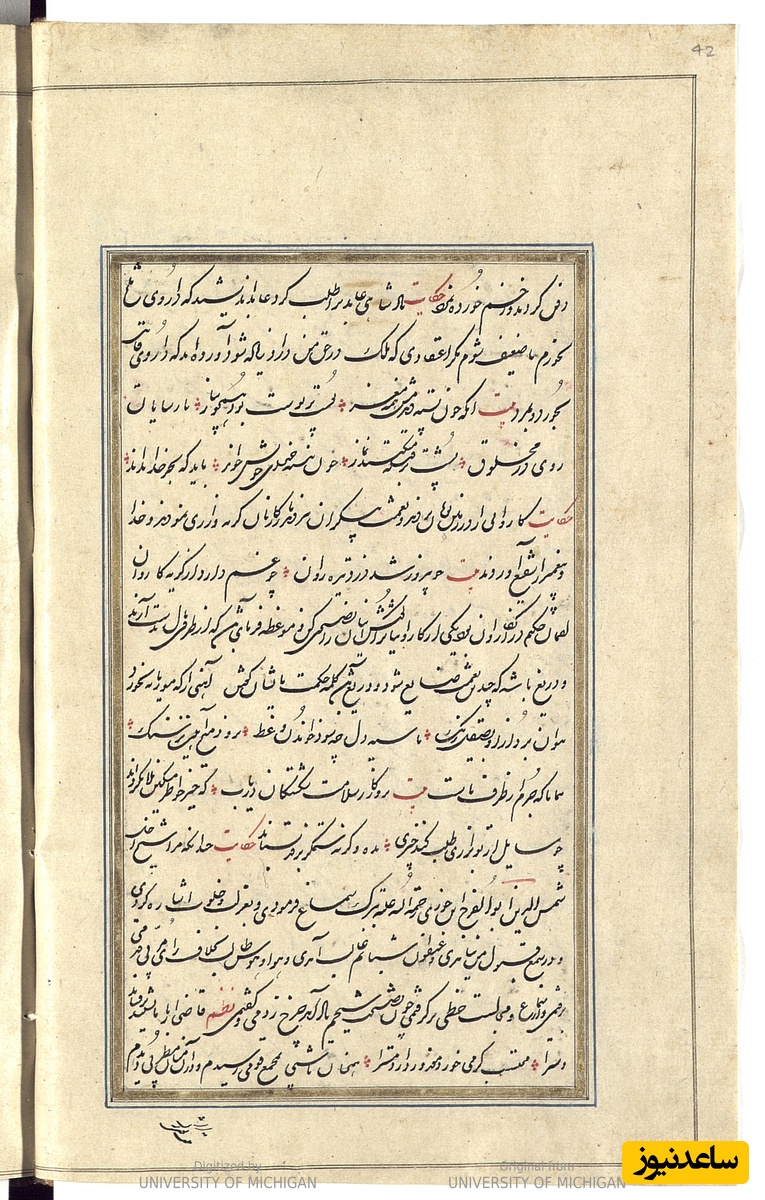 42
دفن کردند و زخم خورده حکایت پادشاهی عابدی را طلب کرد عابد اندیشید که داروی
بخورم تا ضعیف شوم مگر اعتقادی که ملک در حق من دارد زیاده شود آورده اند که داروی قاتل
بخورد و بمرد بیت آنکه چون پسته دیدمش همه مغز پوست بر پوست بود همچو پیاز پارسایان
روی در مخلوق پشت بر قبله میکنند نماز چون بنده خدای خویش خواند باید که بجز خدا نداند
حکایت کاروانی را در زمین یونان بزدند و نعمت بیکران ببردند بازرگانان گریه و زاری نمودند و خدا
و پیغمبر شفیع آوردند بیت چو پیروز شد دزد تیره روان چه غم دارد از گریه کاروان
لقمان حکیم در آن کاروان بود یکی از کاروانیان گفتش اینان را نصیحتی کن و موعظه فرمای که از طرفی مال دست بدارند
و دریغ باشد که چندین نعمت ضایع شود و دریغ کلمه حکمت با ایشان گفتن آهنی را که موریانه بخورد
نتوان برد ازو بصیقل زنگ با سیه دل چه سود خواندن وعظ نرود میخ آهنین در سنگ
همانا که جرم از طرف ماست بیت بروزگار سلامت شکستگان دریاب که جبر خاطر مسکین بلا بگرداند
چو سایل از تو بزاری طلب کند چیزی بده و گرنه ستمگر بزور بستاند حکایت چندانکه مرا شیخ اجل
شمس الدین ابو الفرج ابن جوزی رحمة الله علیه بترک سماع فرمودی و بعزلت و خلوت اشاره کردی
و در سمع قبول من نیامدی و عنفوان شبابم غالب آمدی و هوا و هوس طالب بخلاف رأی مربی قدمی
برفتمی و از سماع و مجالست حظی برگرفتمی چون نصیحت شیخم یاد آمدی چرخ زدمی و گفتمی نظم قاضی ار با ما نشیند برفشاند
دست را محتسب گر می خورد معذور دارد مست را همچنان تا شبی بمجمع قومی رسیدم و در آن میان مطربی دیدم
Digitized by
UNIVERSITY OF MICHIGAN
Original from
UNIVERSITY OF MICHIGAN
ساعدنیوز